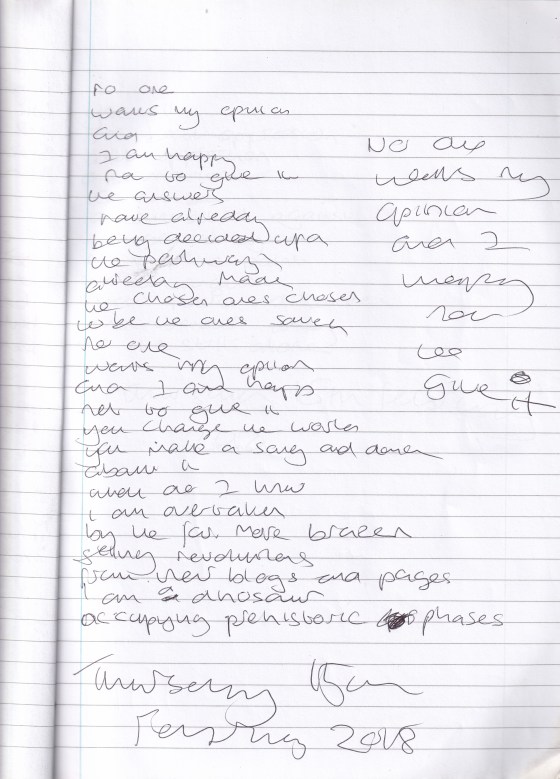 no one
wants my opinion
and
I am happy
not to give it
the answers
have already
being decided upon
the pathways
already made
the chosen ones chosen
to be the ones saved
no one
wants my opinion
and I am happy
not to give it
you change the world
you make a song and dance
about it
what do I know
I am overtaken
by the far more brazen
selling revolutions
from their blogs and pages
I am a dinosaur
occupying prehistoric phases
No one
wants my
opinion
and I
happy
not
give it
2018